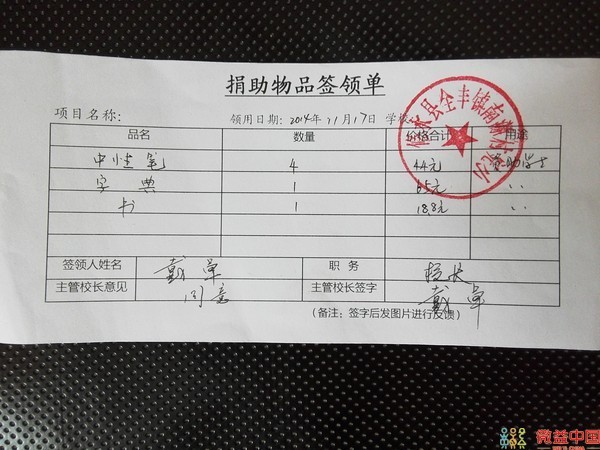 捐助物品签领单
项目名称: 领用日期: 2014年11月17日 学校
品名 数量 价格合计 用途
中性笔 4 44元 资助学生
字典 1 65元 〃
书 1 18.8元 〃
签领人姓名 戴单 职务 校长
主管校长意见 同意 主管校长签字 戴单
(备注: 签字后发图片进行反馈)
修水县全丰镇南源村完小
微益中国